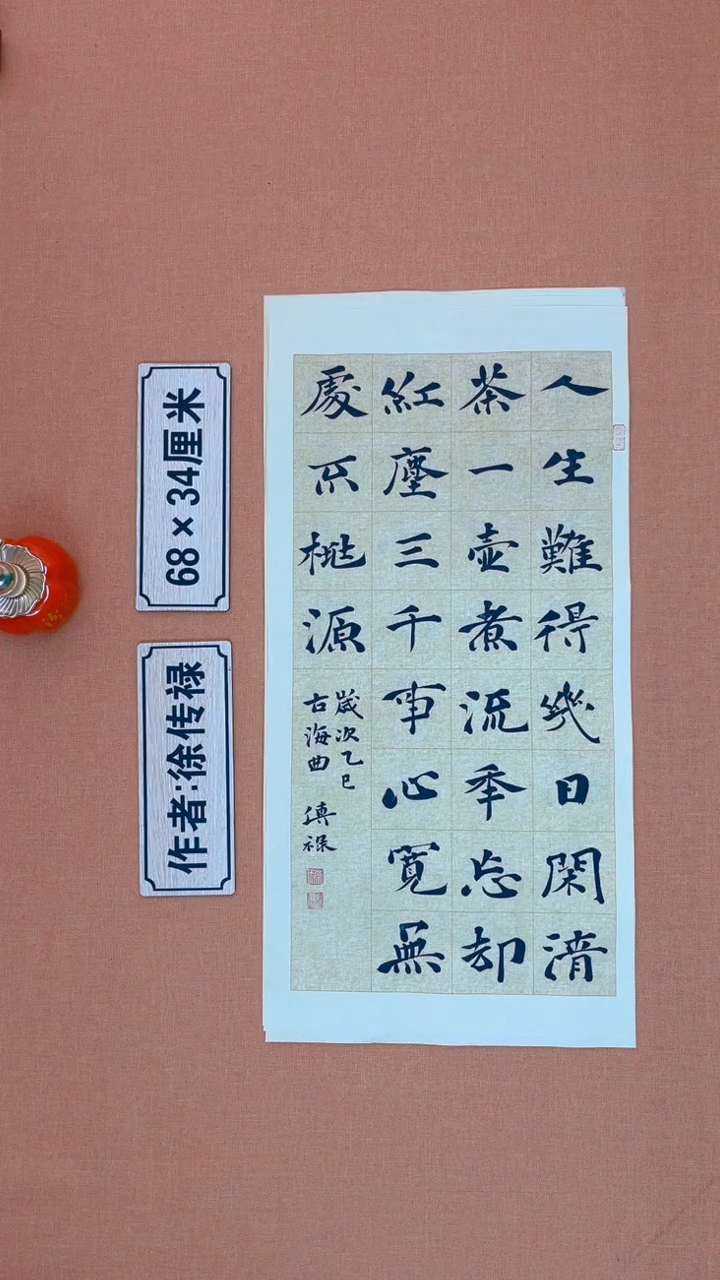 人生難得幾日閑清
茶一壺煮流年忘却
紅塵三千事心寬無
處不桃源
歲次乙巳
古海曲 傳祿
68×34厘米
作者:徐传禄